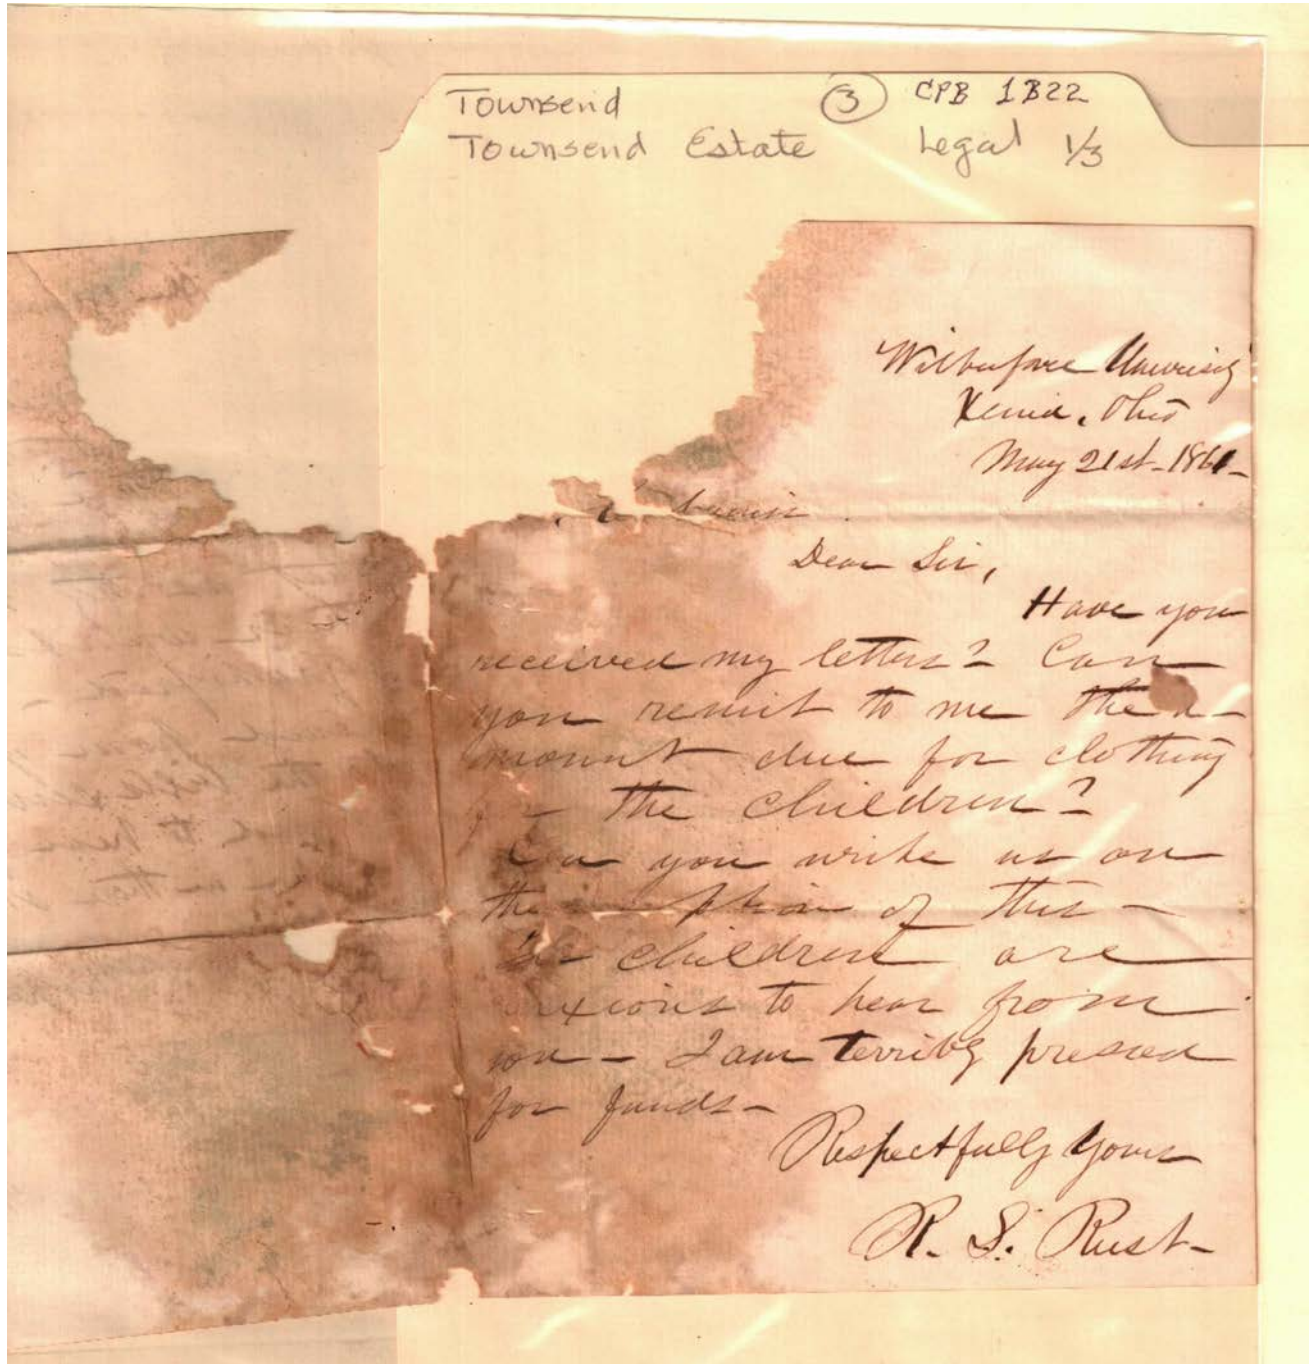 Townsend ③ CPB 1B22
Townsend Estate Legal 1/3
Wilberforce University
Xenia, Ohio
May 21st - 1861 -
Dear Sir,
Have you
received my letters? Can
you remit to me the a-
mount due for clothing
the children?
you write us on
the of this -
children are
to hear from
you - I am terribly pressed
for funds -
Respectfully Yours
R. S. Rust -